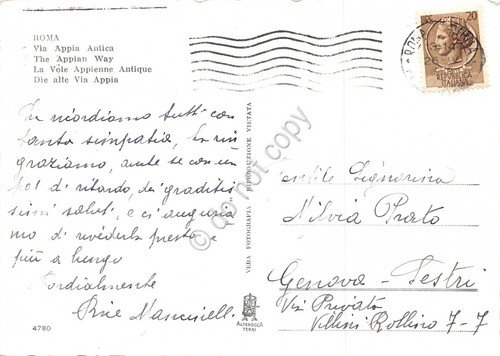 ROMA
Via Appia Antica
The Appian Way
La Voie Appienne Antique
Die alte Via Appia
La ricordiamo tutti con
tanta simpatia, la rin
graziamo, anche se con un
po' di ritardo, dei graditis
simi saluti, e ci auguria
mo di rivederla presto e
più a lungo
Cordialmente
4780
VERA FOTOGRAFIA - RIPRODUZIONE VIETATA
ALTEROCCA
TERNI
20
ROMA
Gentile Signorina
Silvia Prato
Genova - Sestri
Via Privata
Villini Rollino 7-7
do not copy